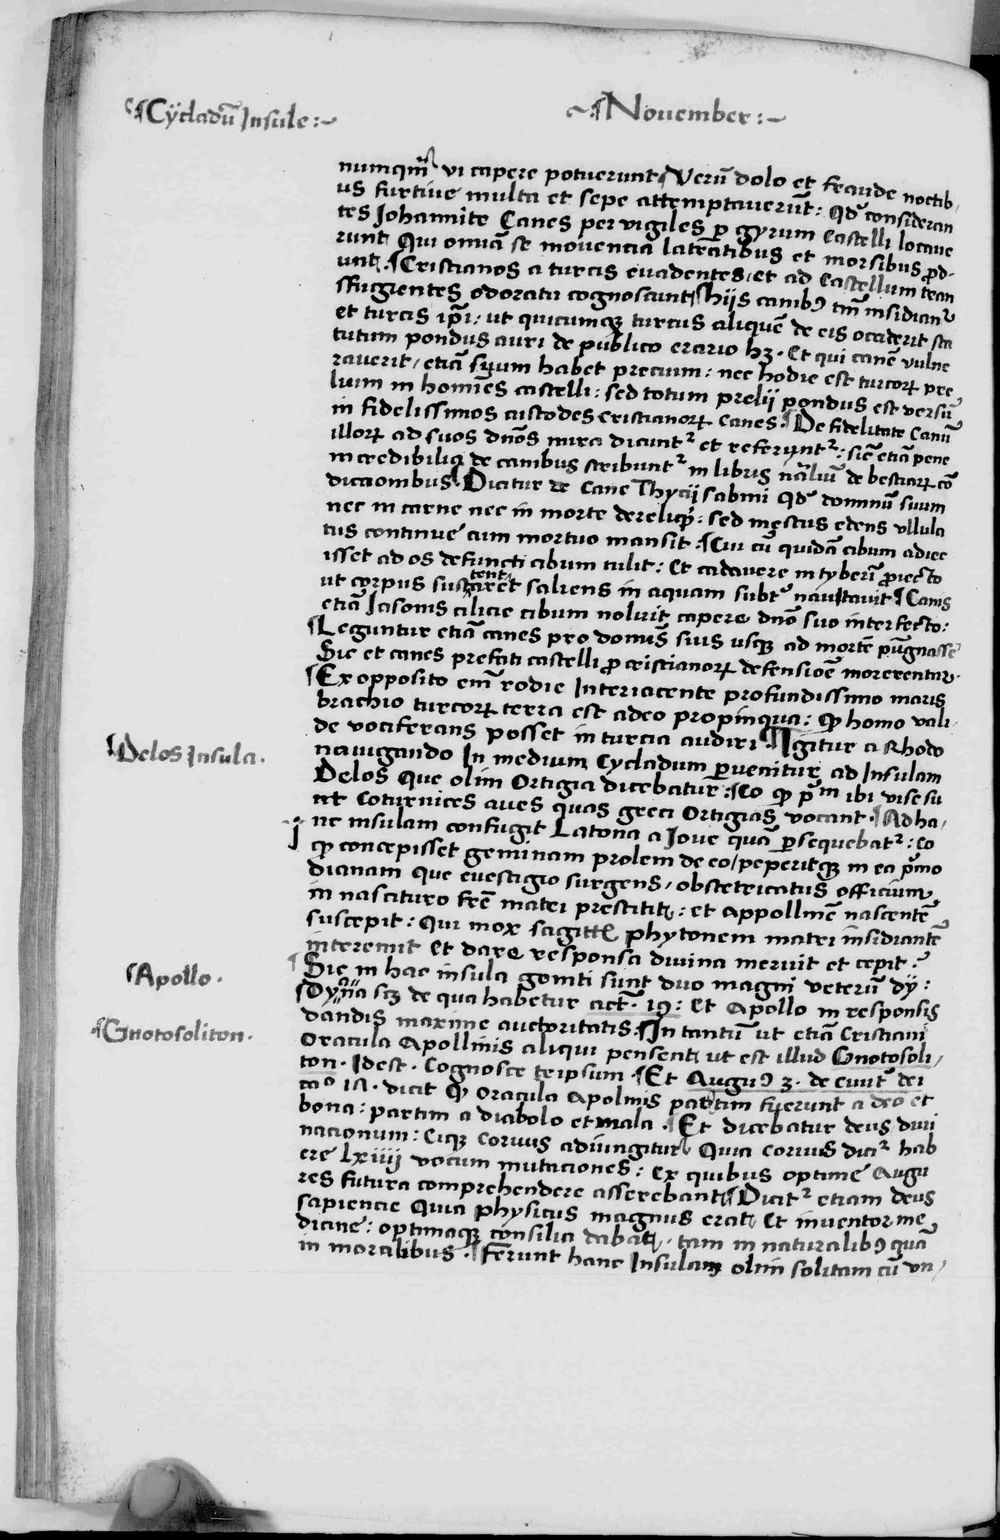 ¶Cycladū Insule:~
~¶November:~
numqm̄ vi capere potuerunt¶Verū dolo et fraude noctib,
us furtive multa et sepe attemptaverūt: Qd̄ consideran
tes Johannite Canes pervigiles p gyrum Castelli locave
runt Qui omnia se moventia latratibus et morsibus prod-
unt.¶Cristianos a turcis evadentes, et ad Castellum tran
sfugientes odoratu cognoscunt¶hijs canibꝰ tm̄ insidianr̄
et turcis ip̄i: ut quicumqꝫ turcus aliquē de eis occiderit sta
tutum pondus auri de publico erario hꝫ. Et qui canē vulne
raverit, etiā suum habet precium: nec hodie est turcoꝝ pre
lium in homīes castelli: sed totum prelij pondus est versū
in fidelissimos custodes cristianoꝝ Canes.¶De fidelitate Canū
illoꝝ ad suos dn̄os mira dicuntr̄ et referuntr̄: sic̄ etiā pene
incredibilia de canibus scribuntr̄ in libris nāliū de bestiaꝝ cō
dicionibus¶Dicitur de Cane Thycij sabini qd̄ dominū suum
nec in carne nec in morte dereliq̄t: sed mestus edens ullula
tus continue cum mortuo mansit.¶Cui cū quidā cibum adiec
isset ad os defuncti cibum tulit: Et cadavere in tyberī proiecto
ut corpus sustentaret saliens in aquam subtr̄ navitavit¶Canis
etiā Jasonis cilicie cibum noluit capere dn̄o suo interfecto:
¶Leguntur etiā canes pro domīs suis usqꝫ ad mortē pūgnasse
Sic et canes prefati castelli p cristianoꝝ defensiōe morerentur.
¶Ex opposito em̄ rodie Interiacente profundissimo maris
brachio turcoꝝ terra est adeo propinqua: qꝫ homo vali,
de vociferans posset in turcia audiri.¶Igitur a Rhodo
navigando In medium Cycladum pervenitur ad Insulam
¶Delos Insula.
Delos Que olim Ortigia dicebatur:¶Eo qꝫ pm̄ ibi vise su
nt Coturnices aves quas greci Ortigias vocant.¶Ad ha,
nc insulam confugit Latona a Jove quā psequebatr̄: Eo
qꝫ concepisset geminam prolem de eo, peperitqꝫ in ea pmo
dianam que evestigio surgens, obstetricatus officium
in nascituro frē matri prestitit: et Appollinē nascentē
suscepit: Qui mox sagittꝭ phytonem matri insidiantē
interemit Et dare responsa divina meruit et cepit.
¶Sic in hac insula geniti sunt duo magni veterū dij:
¶Apollo.
¶Dyana scꝫ de qua habetur act. 19: Et Apollo in responsis
dandis maxime auctoritatis.¶In tantū ut etiā Cristiani
¶Gnotosoliton.
Oracula Apollinis aliqui pensent ut est illud Gnotosoli,
ton. Idest. Cognosce teipsum.¶Et Augꝰ 3. de civit dei
dicit qꝫ Oracula Apolinis partim fuerunt a deo et
bona: partim a diabolo et mala.¶Et dicebatur deus divi
nacionum: Eiqꝫ Corvus adiungitur Quia corvus dicir̄ hab
ere lxiiij vocum mutaciones: Ex quibus optime Augu
res futura comprehendere asserebant¶Dicitr̄ etiam deus
sapiencie Quia physicus magnus erat Et inventor me
dicine: optimaqꝫ consilia dabat. tam in naturalibꝰ quā
in moralibus.¶Ferunt hanc Insulam olim solitam cū un,